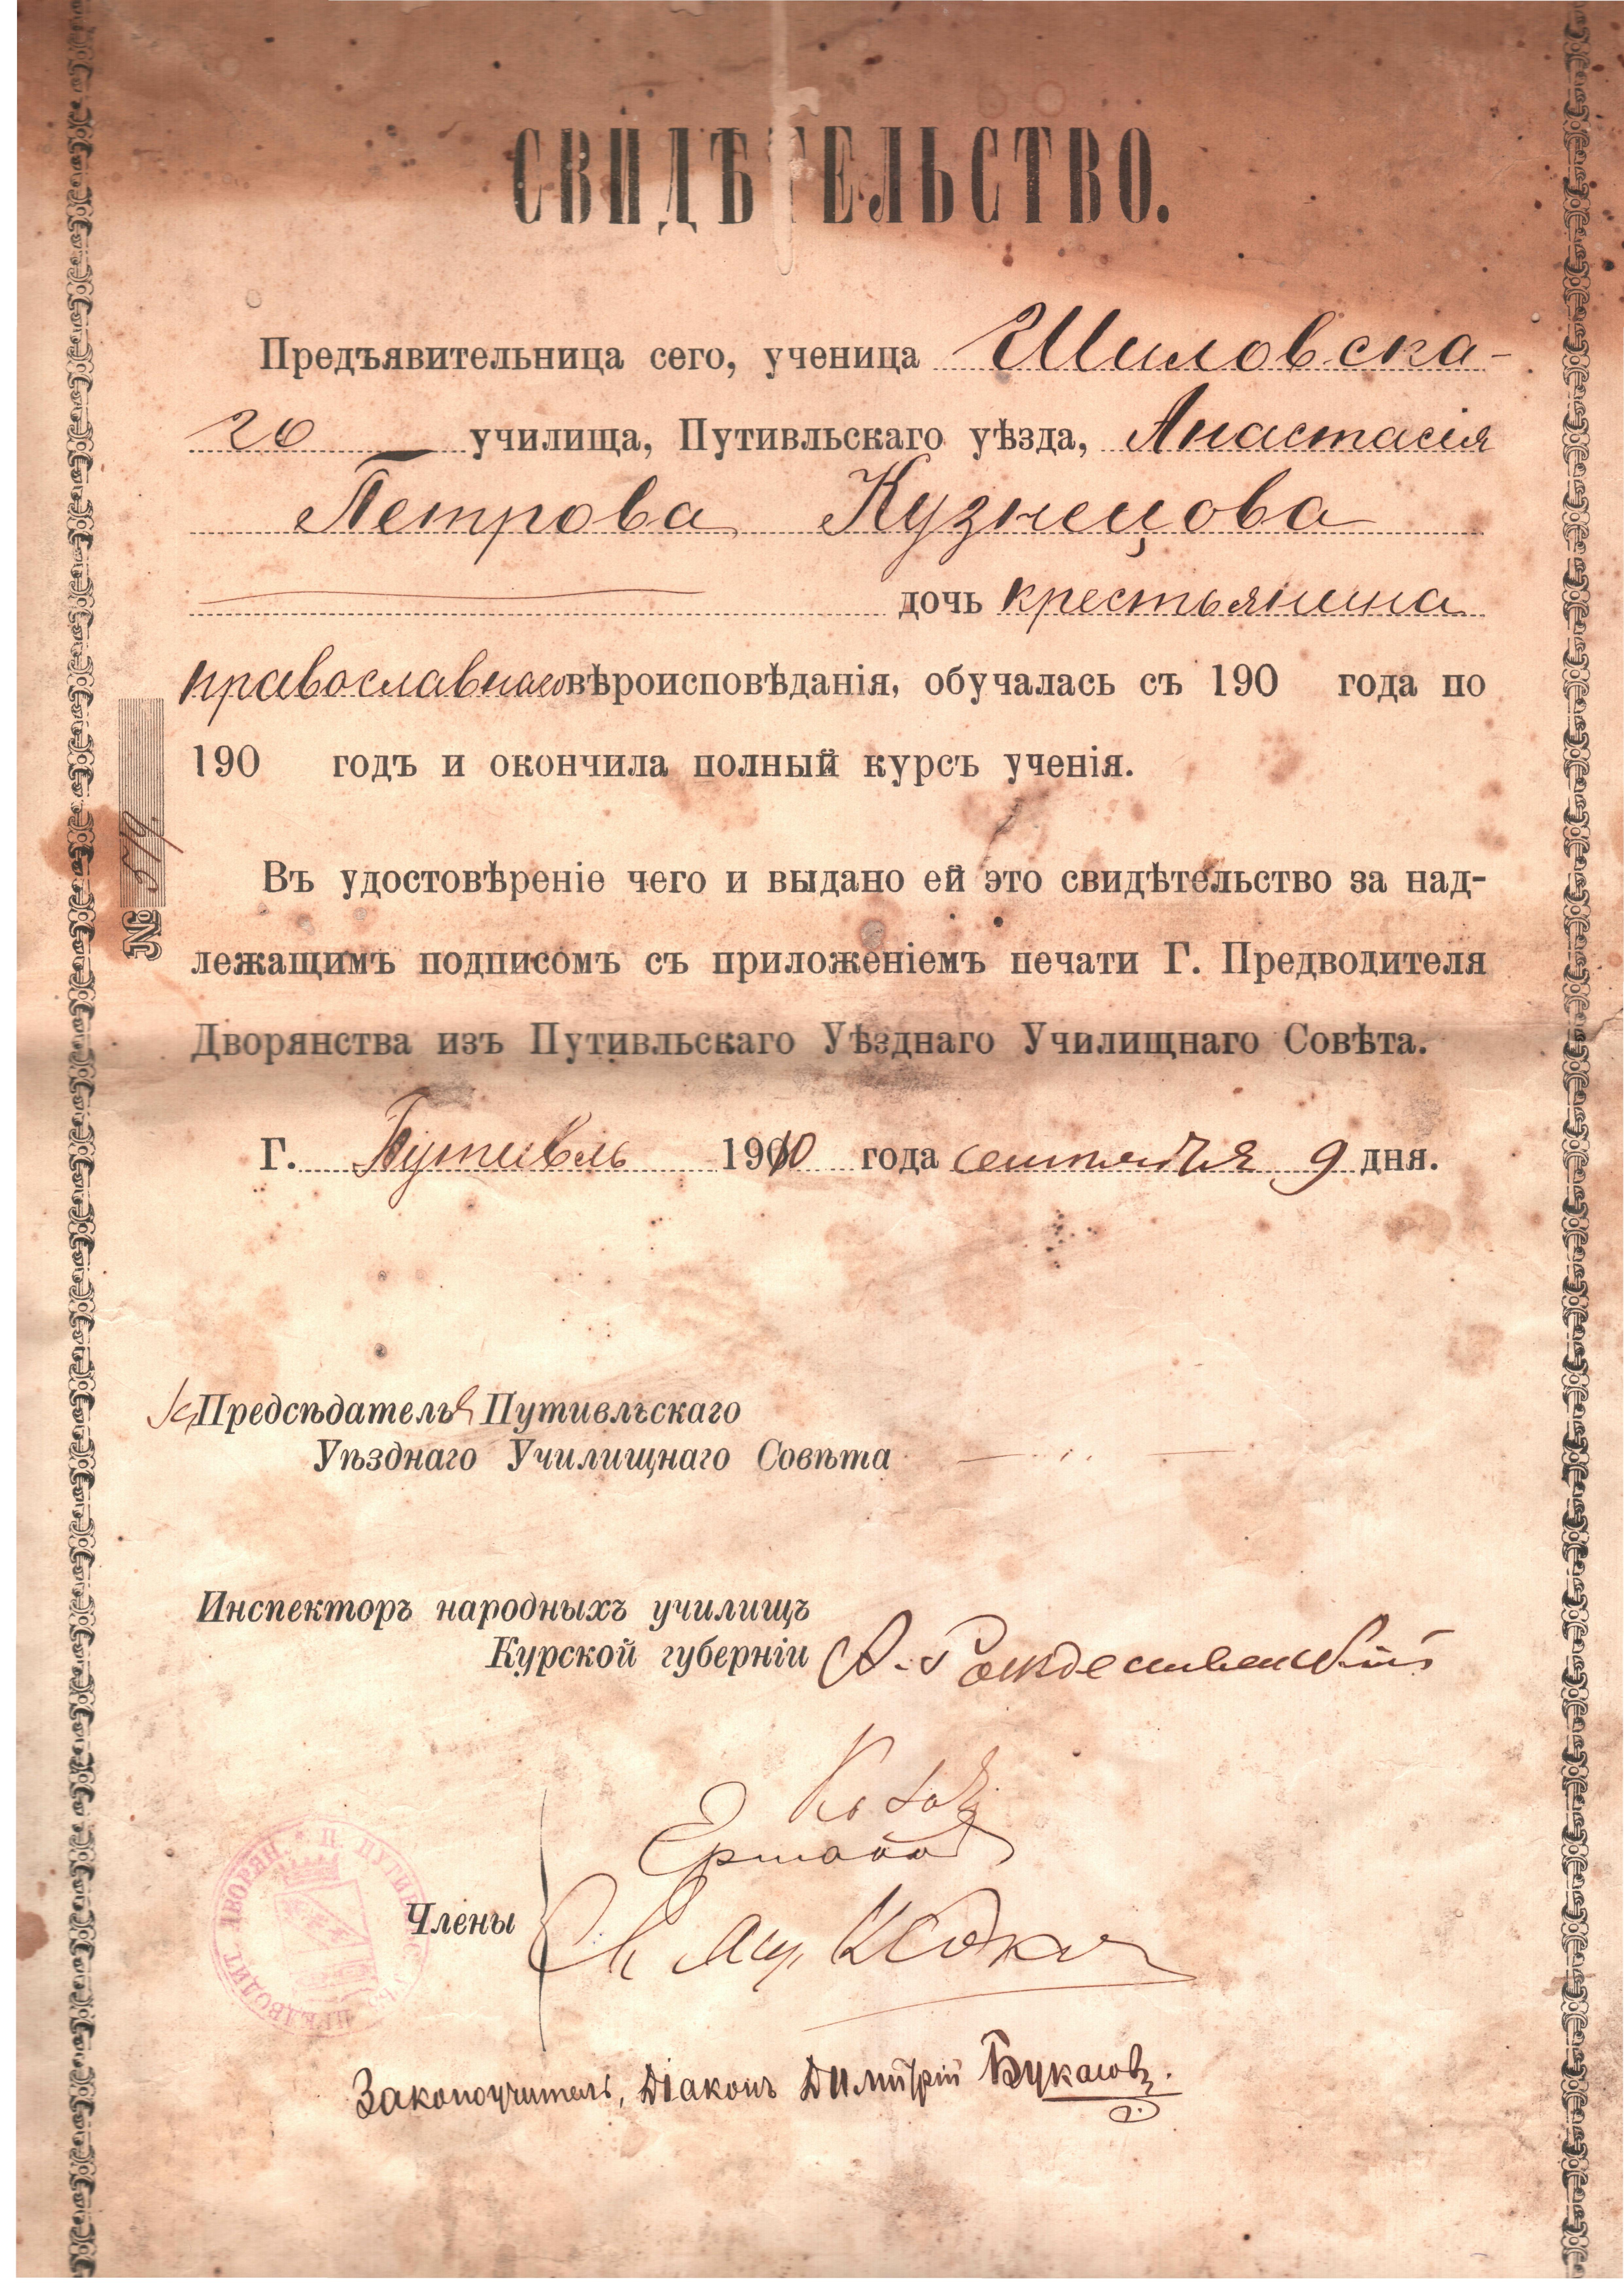 СВИДѢТЕЛЬСТВО.
Предъявительница сего, ученица Шиловска-
го училища, Путивльскаго уѣзда, Анастасія
Петрова Кузнецова
дочь крестьянина
православнаго вѣроисповѣданія, обучалась съ 190 года по
190 годъ и окончила полный курсъ ученія.
№
Въ удостовѣреніе чего и выдано ей это свидѣтельство за над-
лежащимъ подписомъ съ приложеніемъ печати Г. Предводителя
Дворянства изъ Путивльскаго Уѣзднаго Училищнаго Совѣта.
Г. Путивль 1910 года сентября 9 дня.
Предсѣдатель Путивльскаго
Уѣзднаго Училищнаго Совѣта
Инспекторъ народныхъ училищъ
Курской губерніи А. Рождественскій
Члены
ПРЕДВОДИТ. ДВОРЯН. П. ПУТИВЛ
Законоучитель, Діаконъ Димитрій